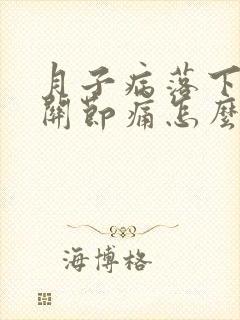 月子病落下
關節痛怎麼
海博格